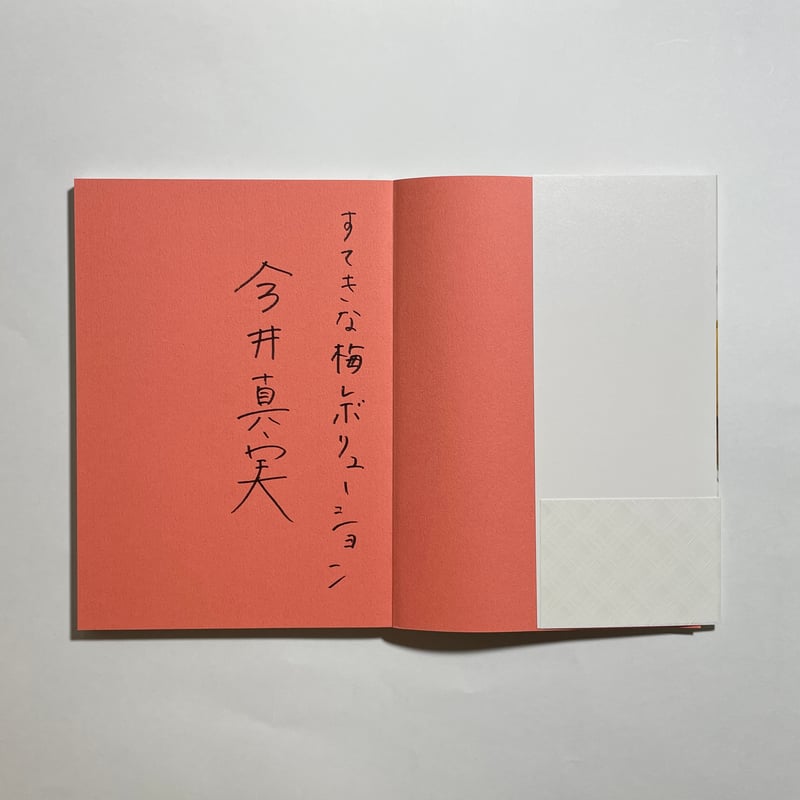 すてきな梅レボリューション
今井真実